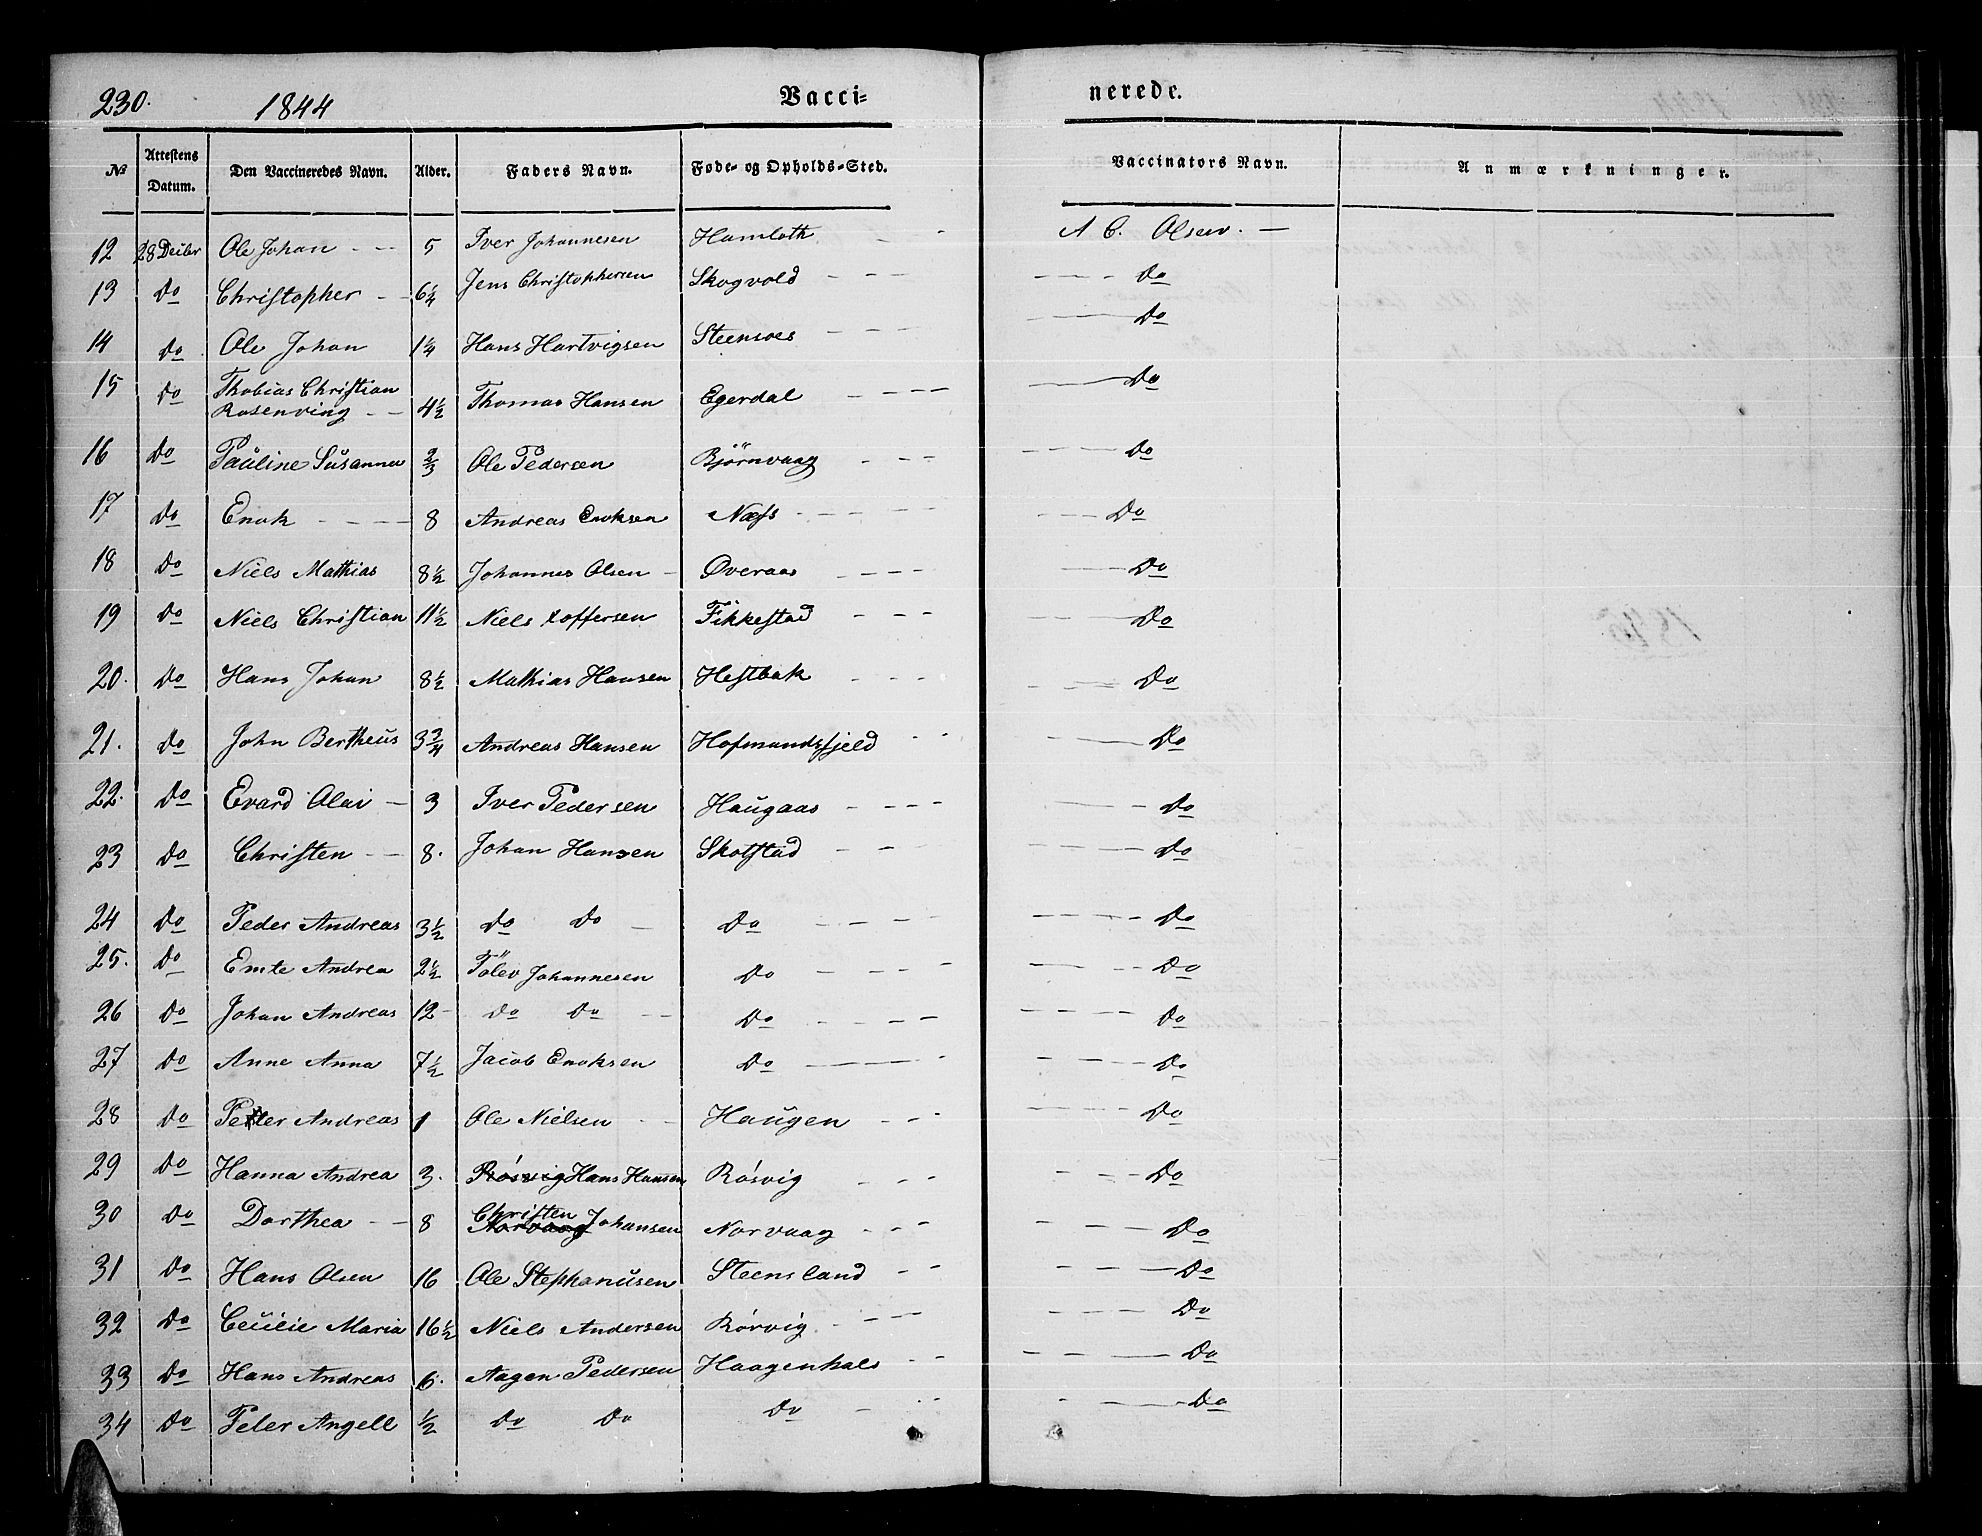 230. 1844 Vacci= nerede.
No Attestens Datum. Den Vaccineredes Navn. Alder. Faders Navn. Føde- og Opholds-Sted. Vaccinators Navn. Anmærkninger.
12 28 Decbr Ole Johan - - 5 Iver Johannesen Hamloth - - A C. Olsen. -
13 Do Christopher - - 6¼ Jens Christophersen Skogvold - - - - - - Do
14 Do Ole Johan 1¼ Hans Hartvigsen Steensoes - - - - - Do
15 Do Thobias Christian
Rosenving - - 4½ Thomas Hansen Egerdal - - - - - Do
16 Do Pauline Susanna ⅔ Ole Pedersen Bjørnvaag - - - - - - Do
17 Do Enok - - - - 8 Andreas Enoksen Næss - - - - - - Do
18 Do Niels Mathias 8½ Johannes Olsen - Overaas - - - - - - Do
19 Do Niels Christian 11½ Niels Koffersen Fikkestad - - - - - Do
20. Do Hans Johan 8½ Mathias Hansen Hestbak - - - - - - Do
21. Do John Bertheus 3¾ Andreas Hansen Hofmandsfjeld - - - - Do
22. Do Evard Olai - 3 Iver Pedersen Haugaas - - - - - - Do
23 Do Christen - - 8. Johan Hansen Skotstad - - - - - Do
24 Do Peder Andreas 3½ Do Do - Do - - - - - - - Do
25. Do Emte Andrea 2½ Tölev Johannesen Do - - - - - - Do
26 Do Johan Andreas 12 - Do Do - - Do - - - - - - - Do
27 Do Anne Anna 7½ Jacob Enoksen Do - - - - - Do
28 Do Peder Andreas 1 Ole Nielsen - - Haugen - - - - - - Do
29 Do Hanna Andrea 3. Rósvig Hans Hansen Rósvig - - - - - - Do
30 Do Dorthea - - 8 Christen
Norvaag Johansen Norvaag - - - - - - Do
31 Do Hans Olsen 16 Ole Stephanusen Steensland - - - - - - Do
32 Do Cecilie Maria 16½ Niels Andersen Rørvig - - - - - - - Do
33 Do Hans Andreas 6. Aagen Pedersen Haagenhals - - - - - - Do
34 Do Peter Angell ½ Do Do Do - - - - - Do